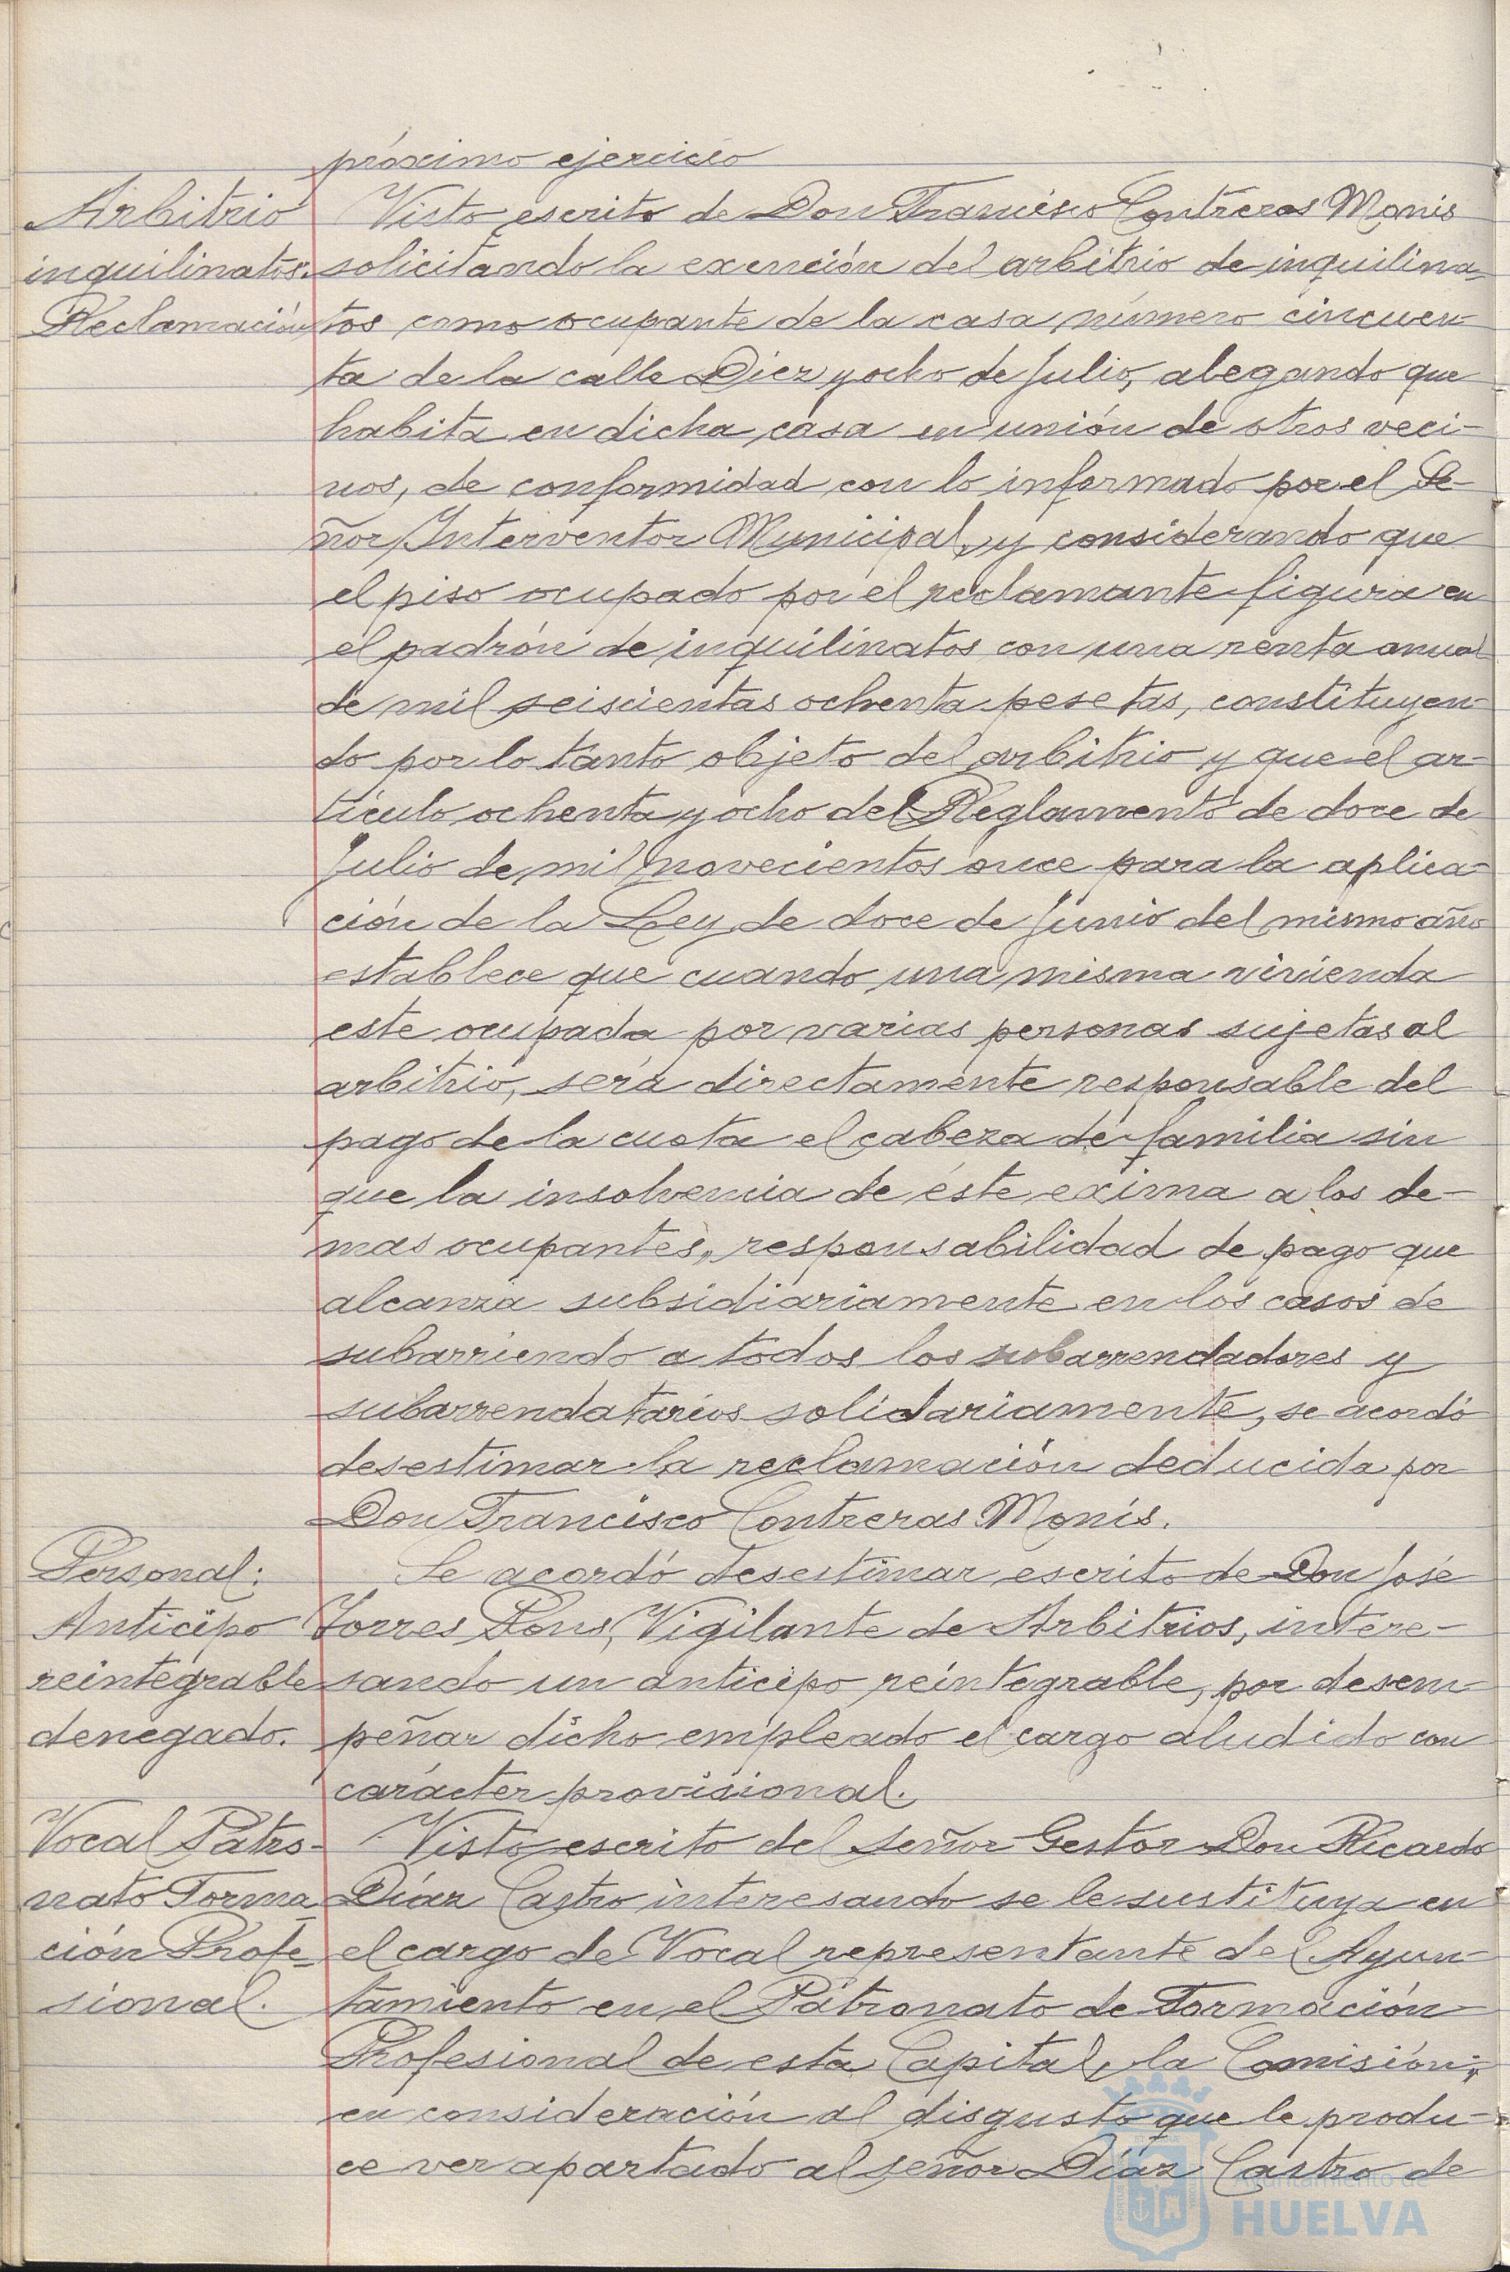 próximo ejercicio
Arbitrio
inquilinatos.
Reclamación
Visto escrito de Don Francisco Contreras Monis
solicitando la exención del arbitrio de inquilina-
tos como ocupante de la casa número cincuen-
ta de la calle Diez y ocho de Julio, alegando que
habita en dicha casa en unión de otros veci-
nos, de conformidad con lo informado por el Se-
ñor Interventor Municipal, y considerando que
el piso ocupado por el reclamante figura en
el padrón de inquilinatos con una renta anual
de mil seiscientas ochenta pesetas, constituyen-
do por lo tanto objeto del arbitrio y que el ar-
tículo ochenta y ocho del Reglamento de doce de
Julio de mil novecientos once para la aplica-
ción de la Ley de doce de Junio del mismo año
establece que cuando una misma vivienda
este ocupada por varias personas sujetas al
arbitrio, será directamente responsable del
pago de la cuota el cabeza de familia sin
que la insolvencia de éste exima a los de-
mas ocupantes, responsabilidad de pago que
alcanza subsidiariamente en los casos de
subarriendo a todos los subarrendadores y
subarrendatarios solidariamente, se acordó
desestimar la reclamación deducida por
Don Francisco Contreras Monís.
Personal:
Anticipo
reintegrable
denegado.
Se acordó desestimar escrito de Don José
Torres Pons, Vigilante de Arbitrios, intere-
sando un anticipo reintegrable, por desem-
peñar dicho empleado el cargo aludido con
carácter provisional.
Vocal Patro-
nato Forma-
ción Profe-
sional.
Visto escrito del señor Gestor Don Ricardo
Díaz Castro interesando se le sustituya en
el cargo de Vocal representante del Ayun-
tamiento en el Patronato de Formación
Profesional de esta Capital, la Comisión,
en consideración al disgusto que le produ-
ce ver apartado al señor Díaz Castro de
Ayuntamiento de
HUELVA